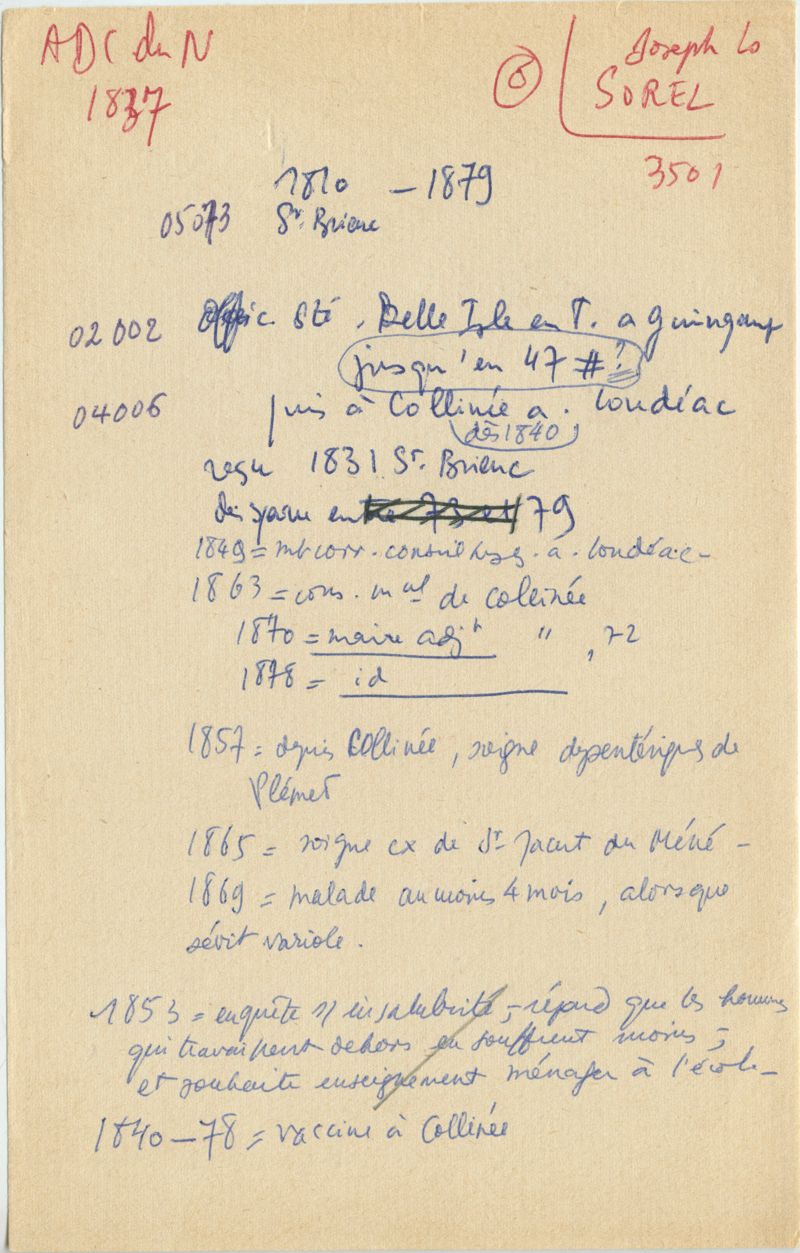 ADC du N
1837
6
Joseph Lo
SOREL
3501
1810 – 1879
05073 St. Brieuc
02002 Offic. Sté. Belle Isle en T. a Guingamp
jusqu'en 47 # ?
04006 puis à Collinée a. Loudéac
dès 1840
reçu 1831 St. Brieuc
disparu entre 73 et 79
1849 = mb corr. conseil hyg. a. Loudéac –
1863 = cons. mal de Collinée
1870 = maire adjt " , 72
1878 = id
1857 = depuis Collinée, soigne dysentériques de
Plémet
1865 = soigne cx de St Jacut du Méné –
1869 = malade au moins 4 mois, alors que
sévit variole.
1853 = enquête s/ insalubrité, – répond que les hommes
qui travaillent dehors en souffrent moins ; –
et souhaite enseignement ménager à l'école –
1840 – 78 = vaccine à Collinée